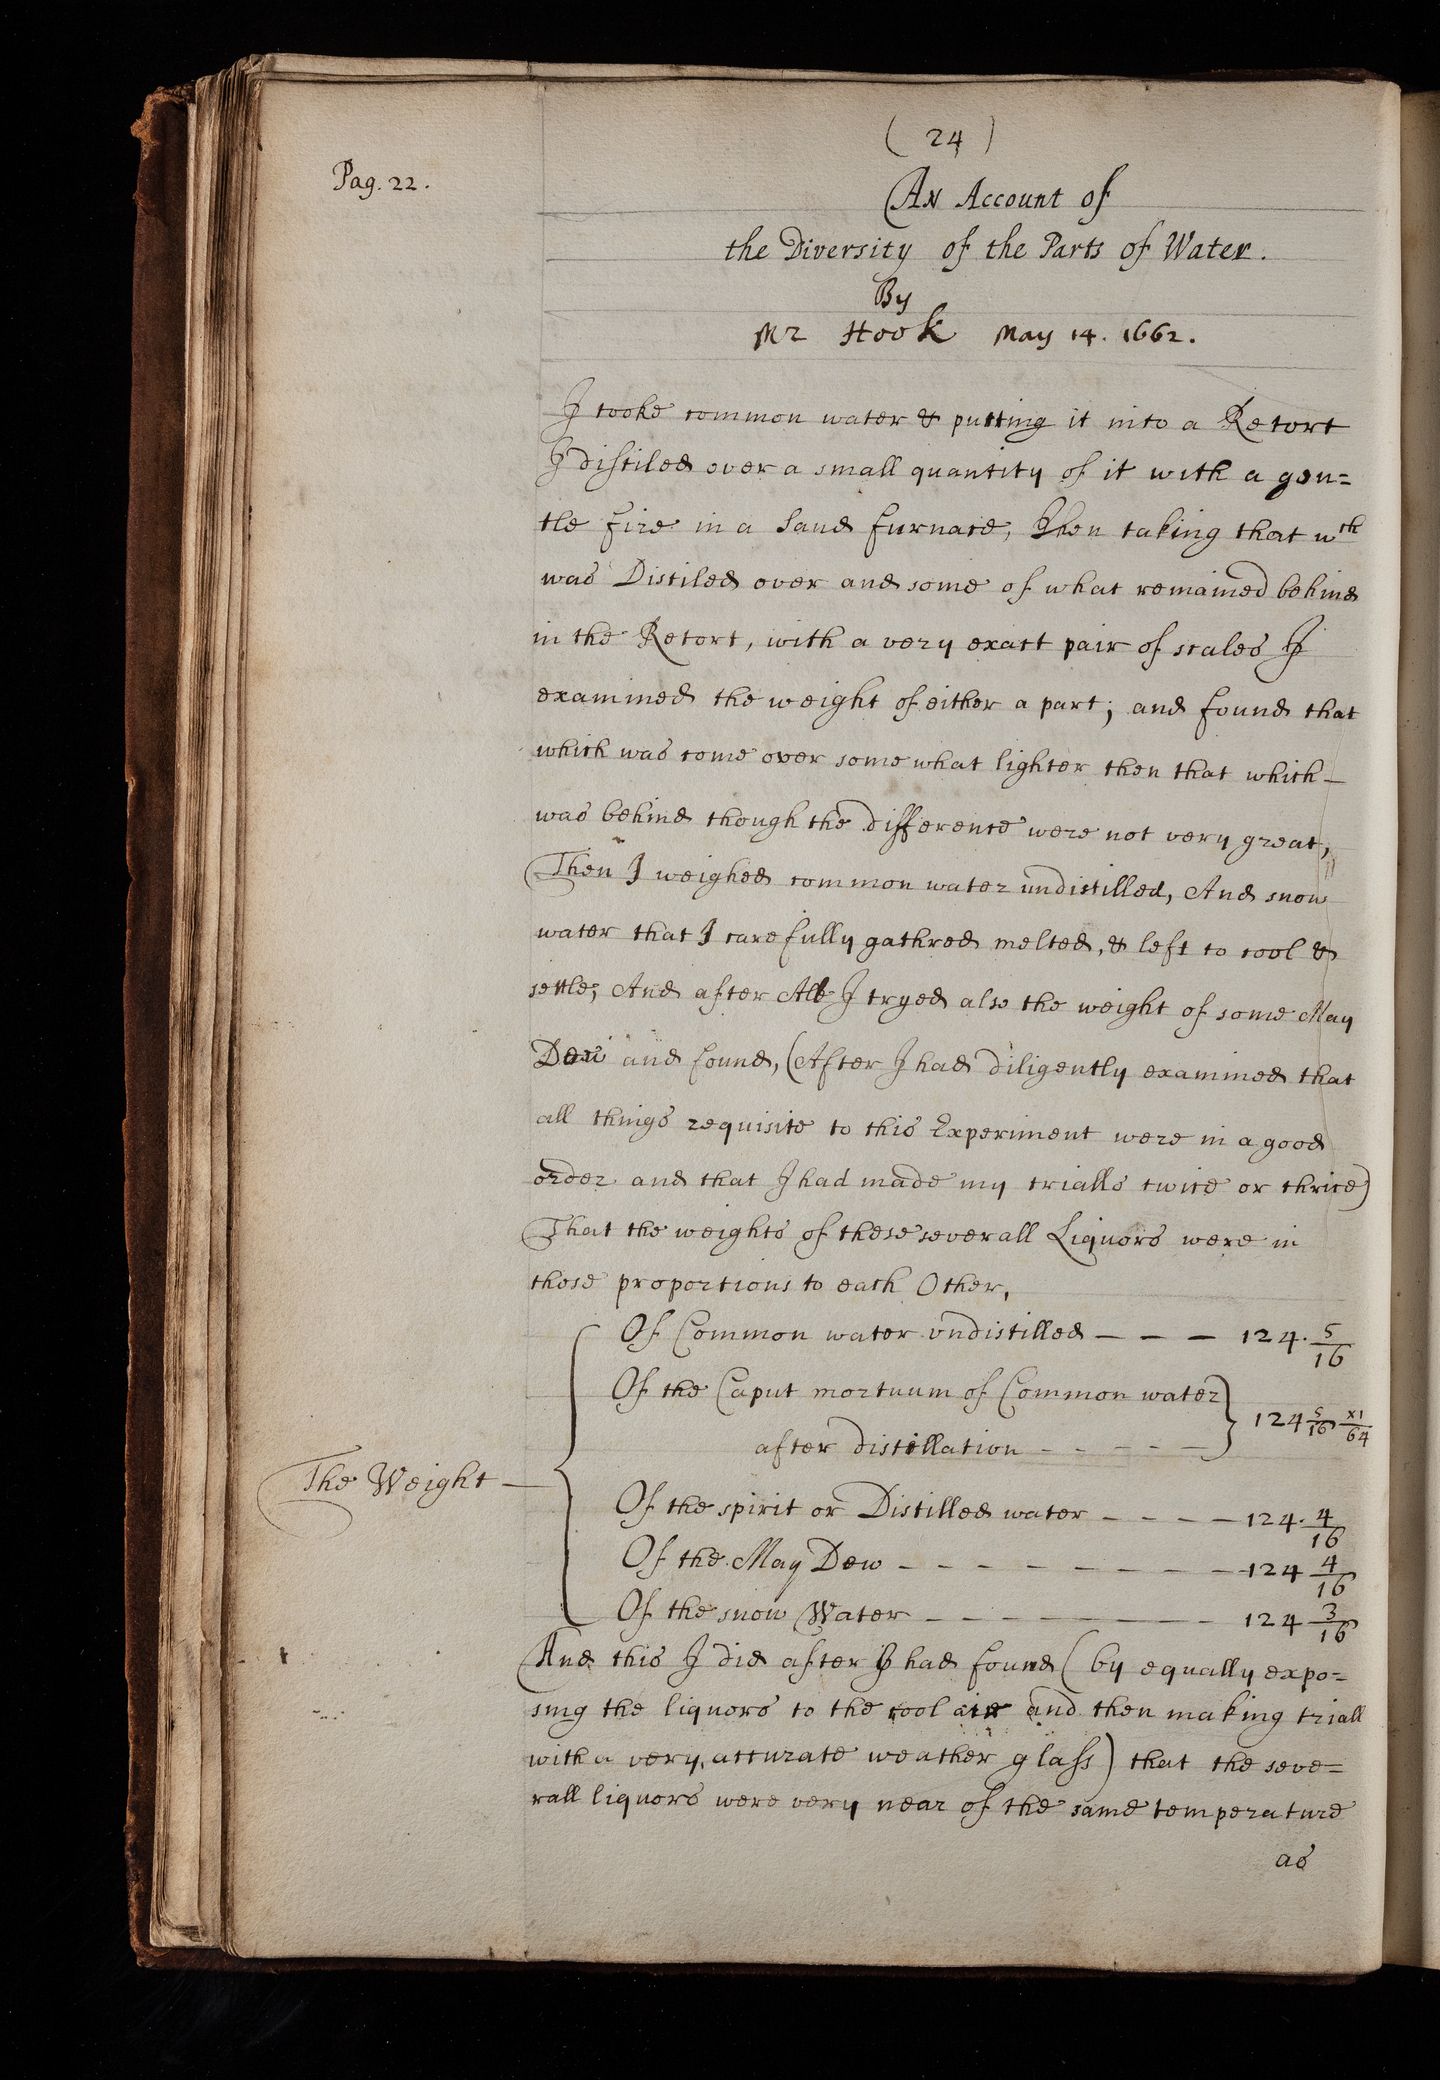 ( 24 )
Pag. 22.
An Account of
the Diversity of the Parts of Water.
By
Mr Hook May 14. 1662.
I tooke common water & putting it into a Retort
I distiled over a small quantity of it with a gen=
tle fire in a Sand furnace, Then taking that wch
was Distiled over and some of what remained behind
in the Retort, with a very exact pair of scales I
examined the weight of either a part; and found that
which was come over some what lighter then that which –
was behind though the difference were not very great,
Then I weighed common water undistilled, And snow
water that I carefully gathred melted, & left to cool &
settle; And after All I tryed also the weight of some May
Dew and found, (After I had diligently examined that
all things requisite to this Experiment were in a good
order and that I had made my trialls twice or thrice)
That the weights of these severall Liquors were in
those proportions to each Other,
Of Common water vndistilled – – – 124. 5/16
Of the Caput mortuum of Common water
after distillation – – – – – 124 5/16 x1/64
The Weight –
Of the spirit or Distilled water – – – – 124. 4/16
Of the May Dew – – – – – – – – 124 4/16
Of the snow Water – – – – – – – 124 3/16
And this I did after I had found (by equally expo=
sing the liquors to the cool air and then making triall
with a very accurate weather glass) that the seve=
rall liquors were very near of the same temperature
as